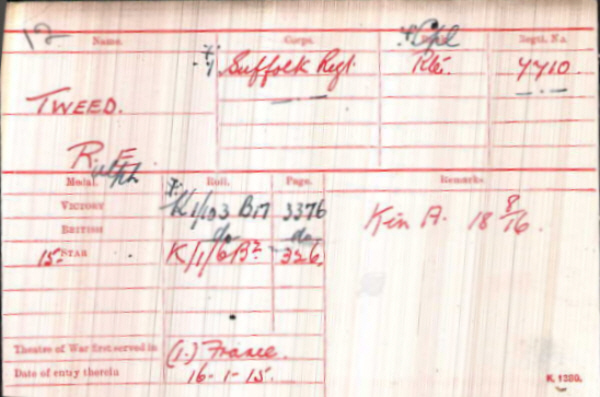 12
Name. Corps. Rank. Regtl. No.
Cpl
Suffolk Regt. Pte. 7710.
TWEED.
R. E.
Ralph
Medal. Roll. Page. Remarks.
VICTORY K/1/103 B17 3376
BRITISH do do
15 STAR K/1/6 B2 326.
Kin A. 18 8/16.
Theatre of War first served in (1.) France.
Date of entry therein 16-1-15.
K. 1380.